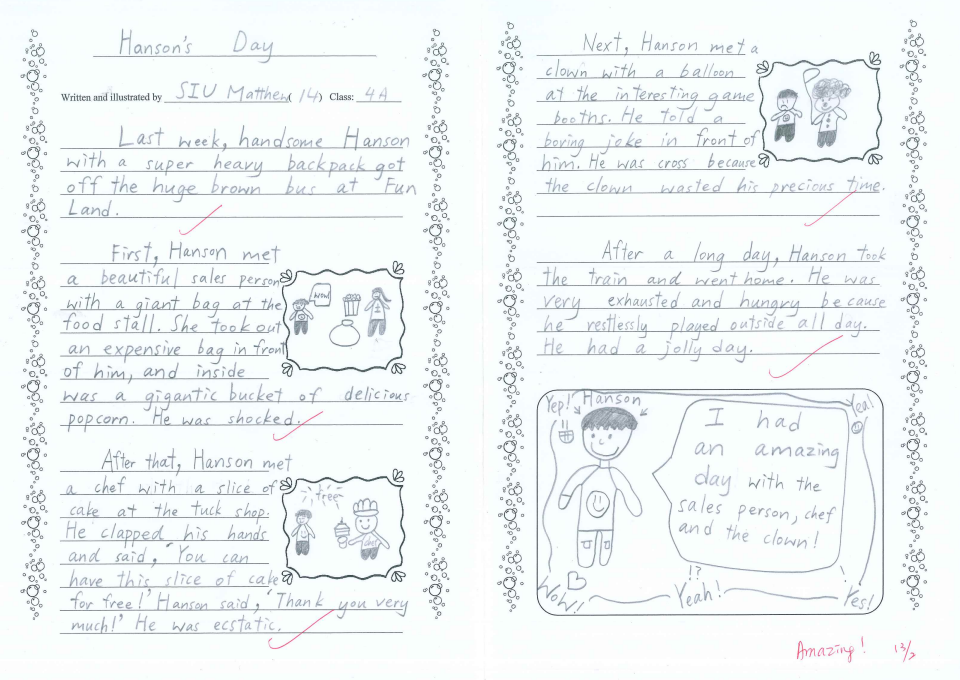 Hanson's Day
Written and illustrated by SIU Matthew (14) Class: 4A
Last week, handsome Hanson
with a super heavy backpack got
off the huge brown bus at Fun
Land.
First, Hanson met
a beautiful sales person
with a giant bag at the
food stall. She took out
an expensive bag in front
of him, and inside
was a gigantic bucket of delicious
popcorn. He was shocked.
WOW!
After that, Hanson met
a chef with a slice of
cake at the tuck shop.
He clapped his hands
and said, 'You can
have this slice of cake
for free!' Hanson said, 'Thank you very
much!' He was ecstatic.
free
chef
Next, Hanson met a
clown with a balloon
at the interesting game
booths. He told a
boring joke in front of
him. He was cross because
the clown wasted his precious time.
After a long day, Hanson took
the train and went home. He was
very exhausted and hungry because
he restlessly played outside all day.
He had a jolly day.
Yep! Hanson
Yea!
I had
an amazing
day with the
sales person, chef
and the clown!
!?
Wow!!
Yeah!
Yes!
Amazing! 13/2